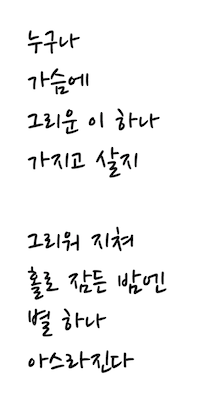 누구나
가슴에
그리운 이 하나
가지고 살지
그리워 지쳐
홀로 잠든 밤엔
별 하나
아스라진다